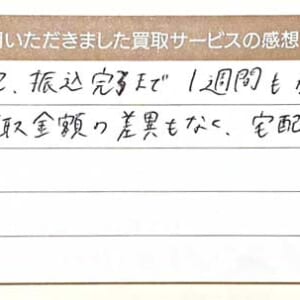 いただきました買取サービスの感想
、振込完了まで1週間も
取金額の差異もなく、宅配